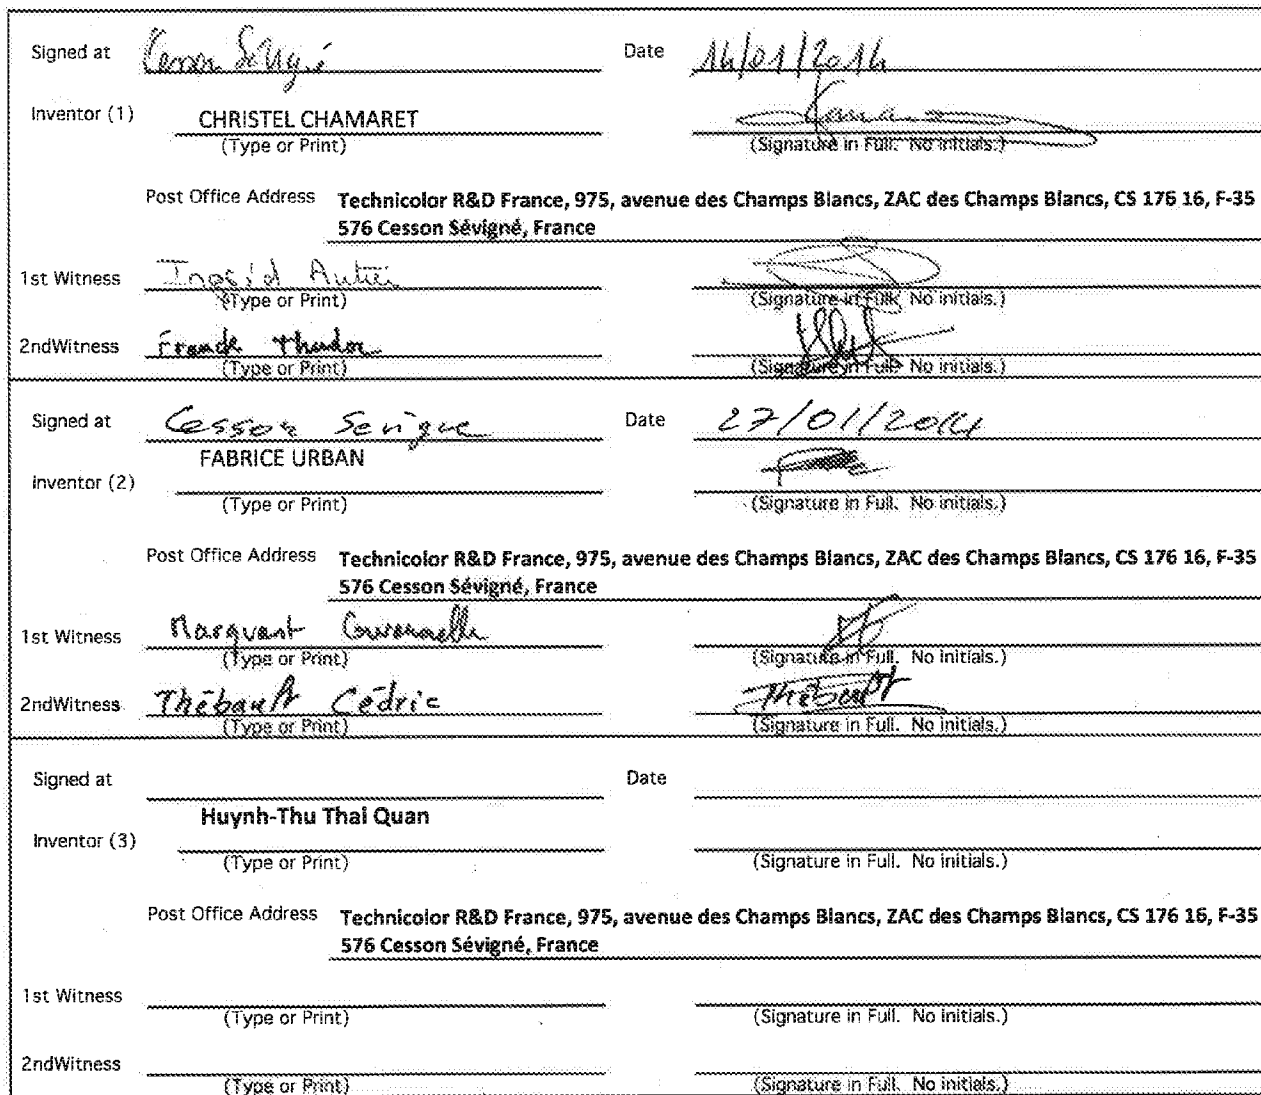 Signed at Cesson Sévigné Date 14/01/2014
Inventor (1) CHRISTEL CHAMARET
(Type or Print) (Signature in Full. No initials.)
Post Office Address Technicolor R&D France, 975, avenue des Champs Blancs, ZAC des Champs Blancs, CS 176 16, F-35
576 Cesson Sévigné, France
1st Witness Ingrid Autier
(Type or Print) (Signature in Full. No initials.)
2ndWitness Franck Thudor
(Type or Print) (Signature in Full. No initials.)
Signed at Cesson Sevigne Date 27/01/2014
FABRICE URBAN
Inventor (2)
(Type or Print) (Signature in Full. No initials.)
Post Office Address Technicolor R&D France, 975, avenue des Champs Blancs, ZAC des Champs Blancs, CS 176 16, F-35
576 Cesson Sévigné, France
1st Witness Marquant Gwenaelle
(Type or Print) (Signature in Full. No initials.)
2ndWitness Thébault Cédric Thébault
(Type or Print) (Signature in Full. No initials.)
Signed at Date
Huynh-Thu Thai Quan
Inventor (3)
(Type or Print) (Signature in Full. No initials.)
Post Office Address Technicolor R&D France, 975, avenue des Champs Blancs, ZAC des Champs Blancs, CS 176 16, F-35
576 Cesson Sévigné, France
1st Witness
(Type or Print) (Signature in Full. No initials.)
2ndWitness
(Type or Print) (Signature in Full. No initials.)